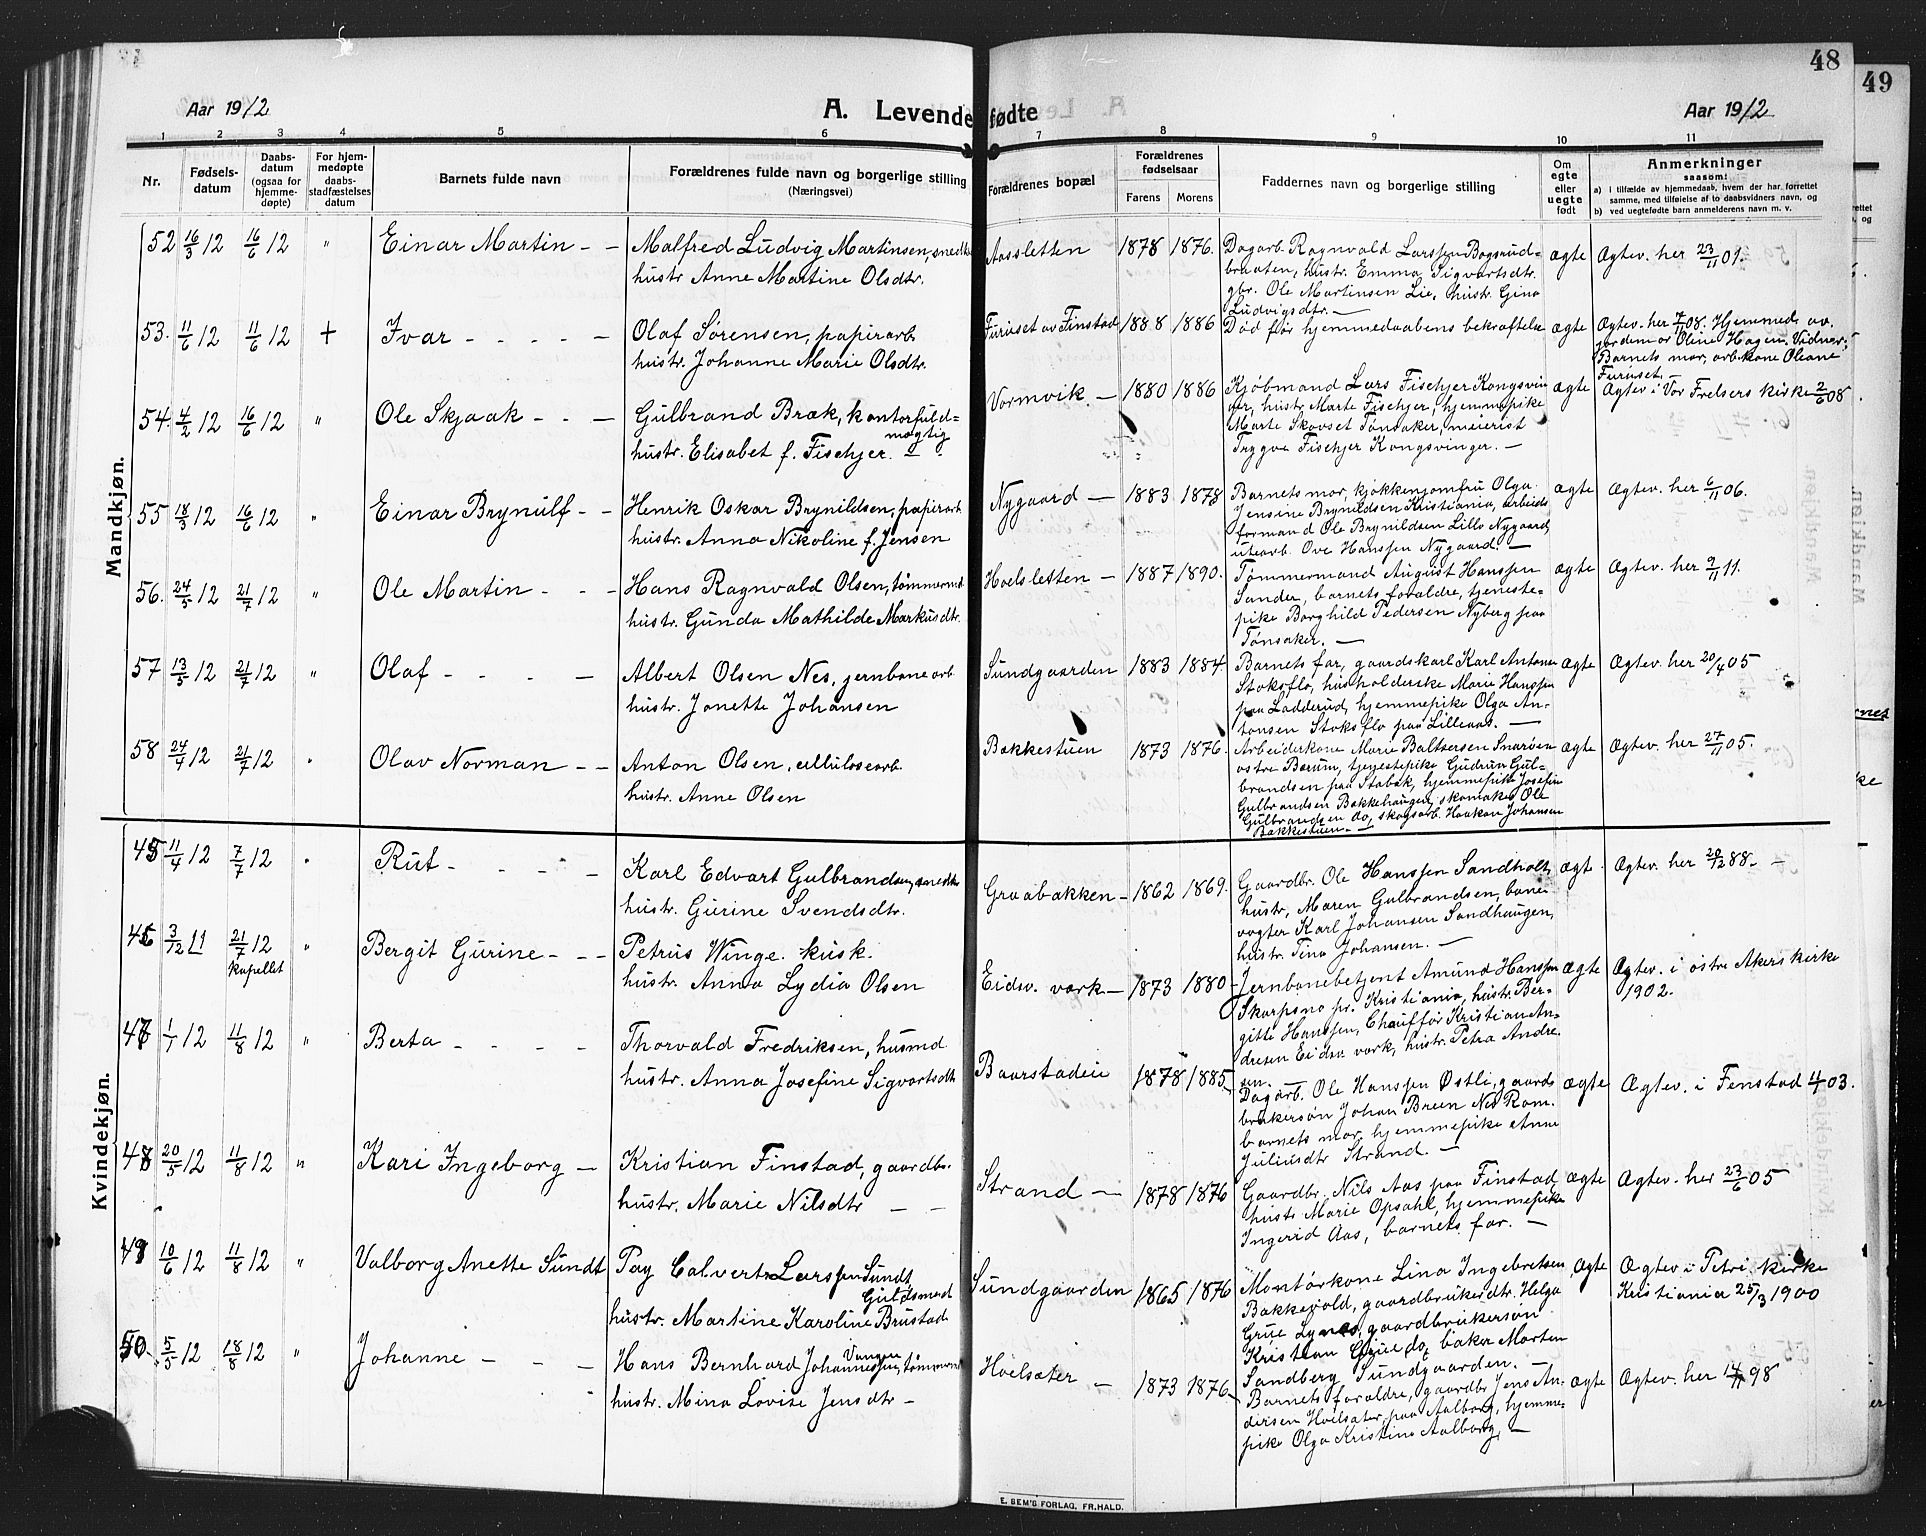 48
49
Aar 1912
A. Levende fødte
Aar 1912
1 2 3 4 5 6 7 8 9 10 11
Nr.
Fødsels-
datum
Daabs-
datum
(ogsaa for
hjemme-
døpte)
For hjem-
medøpte
daabs-
stadfæstelses
datum
Barnets fulde navn
Forældrenes fulde navn og borgerlige stilling
(Næringsvei)
Forældrenes bopæl
Forældrenes
fødselsaar
Farens Morens
Faddernes navn og borgerlig stilling
Om
egte
eller
uegte
født
Anmerkninger
saasom:
a) i tilfælde av hjemmedaab, hvem der har forrettet
samme, med tilføielse af to daabsvidners navn, og
b) ved uegtefødte barn anmelderens navn m. v.
Mandkjøn.
52 16/3 12 16/6 12 " Einar Martin - - Malfred Ludvig Martinsen, snedk
hustr Anne Martine Olsdtr.
Aassletten 1878 1876. Dagarb. Ragnvald Larssen Bogsrud=
braaten, hustr. Emma Sigvartsdtr.
gbr. Ole Martinsen Lie, hustr. Gina
Ludvigsdtr. —
ægte Ægtev. her 23/11 01.
53. 11/6 12 11/6 12 + Ivar - - - - - Olaf Sørensen, papirarb.
hustr. Johanne Marie Olsdtr.
Furuset av Finstad 1888 1886 Død før hjemmedaabens bekræftelse ægte
Ægtev. her 7/11 08. Hjemmed. av.
jordemor Oline Hagen. Vidner:
Barnets mor, arb.kone Oleane
Furuset.
54. 4/2 12 16/6 12 " Ole Skjaak - - - Gulbrand Bræk, kontorfuld=
mægtig
hustr. Elisabet f. Fischjer. - -
Vormvik. - 1880 1886 Kjøbmand Lars Fischjer Kongsvin
ger, hustr. Marte Fischjer, hjemmepike
Marte Skovset Tønsaker, meierist
Trygve Fischjer Kongsvinger. -
ægte Ægtev. i Vor Frelsers kirke 2/6 08
55 18/3 12 16/6 12 " Einar Brynulf - - Henrik Oskar Brynildsen, papirarb
hustr. Anna Nikoline f. Jensen
Nygaard - 1883 1878 Barnets mor, kjøkkenjomfru Olga
Jensine Brynildsen Kristiania, arbeids
formand Ole Brynildsen Lille Nygaard,
utearb. Ove Hanssen Nygaard. -
ægte Ægtev. her 6/11 06.
56. 24/5 12 21/7 12 " Ole Martin - - - Hans Ragnvald Olsen, tømmermd.
hustr. Gunda Mathilde Markusdtr.
Hoelsletten - 1887 1890. Tømmermand August Hanssen
Sander, barnets forældre, tjeneste-
pike Borghild Pedersen Nyberg paa
Tønsaker. -
ægte Ægtev. her 9/11 11.
57 13/5 12 21/7 12 " Olaf - - - - Albert Olsen Nes, jernbanearb
hustr. Jonette Johansen
Sundgaarden 1883 1884. Barnets far, gaardskarl Karl Antonsen
Stoksflo, husholderske Marie Hanssen
paa Ladderud, hjemmepike Olga An-
tonsen Stoksflo paa Lilleaas. -
ægte Ægtev. her 20/4 05
58 24/4 12 21/7 12 " Olav Norman - - Anton Olsen, cellulosearb.
hustr. Anne Olsen
Bakkestuen 1873 1876. Arbeiderkone Marie Baltsersen Snarøen
østre Bærum, tjenestepike Gudrun Gul-
brandsen paa Stabæk, hjemmepike Josefine
Gulbrandsen Bakkehaugen, skomaker Ole
Gulbrandsen do, skogsarb. Haakon Johansen
Bakkestuen. -
ægte Ægtev. her 27/11 05.
Kvindekjøn.
45 11/4 12 7/7 12 " Rut - - - - - Karl Edvart Gulbrandsen, snedker
hustr. Gurine Svendsdtr.
Graabakken - 1862 1869. Gaardbr. Ole Hanssen Sandholt,
hustr, Maren Gulbrandsen, bane-
vogter Karl Johansen Sandhaugen,
hustr. Tina Johansen. -
ægt. Ægtev. her 20/12 88. -
46 3/12 11 21/7 12 " Bergit Gurine - - - Petrus Winge. kusk.
kapellet
hustr. Anna Lydia Olsen
Eidsv. værk - 1873 1880 - Jernbanebetjent Amund Hanssen
Skarpsno pr. Kristiania, hustr. Ber-
gitte Hanssen, Chauffør Kristian An-
dresen Eidsv. værk, hustr. Petra Andre
sen. -
ægte Ægtev. i østre Akers kirke
1902.
47 1/1 12 11/8 12 " Berta - - - - Thorvald Fredriksen, husmd.
hustr. Anna Josefine Sigvartsdtr
Baarstadeie 1878 1885 Dagarb. Ole Hanssen Østli, gaards
brukersøn Johan Breen Nes Rom.
barnets mor, hjemmepike Anne
Juliusdtr Strand. -
ægte Ægtev. i Fenstad 4/1 03.
48 20/5 12 11/8 12 " Kari Ingeborg - Kristian Finstad, gaardbr.
hustr. Marie Nilsdtr - -
Strand - 1878 1876 Gaardbr. Nils Aas paa Finstad,
hustr Marie Opsahl, hjemmepike
Ingerid Aas, barnets far. -
ægte Ægtev. her 23/6 05
49 10/6 12 11/8 12 " Valborg Anette Sundt Pay Calvert Larssen Sundt
Guldsmed
hustr. Martine Karoline Brustad
Sundgaarden 1865 1876 Montørkone Lina Ingebretsen
Bakkevold, gaardbrukerdtr. Helga
Grue Lynes, gaardbrukersøn
Kristian Grue do, baker Morten
Sandberg Sundgaarden. -
ægte Ægtev i Petri kirke
Kristiania 25/3 1900
50. 5/5 12 18/8 12 " Johanne - - - Hans Bernhard Johannessen Vangen, tømmermd
hustr. Mina Lovise Jensdtr -
Hoelsæter - 1873 1876 Barnets forældre, gaardbr Jens An-
dersen Hoelsæter, paa Aalborg, hjemme-
pike Olga Kristine Aalborg, -
ægte Ægtev. her 14/11 98
E. SEM'S FORLAG, FR.HALD.